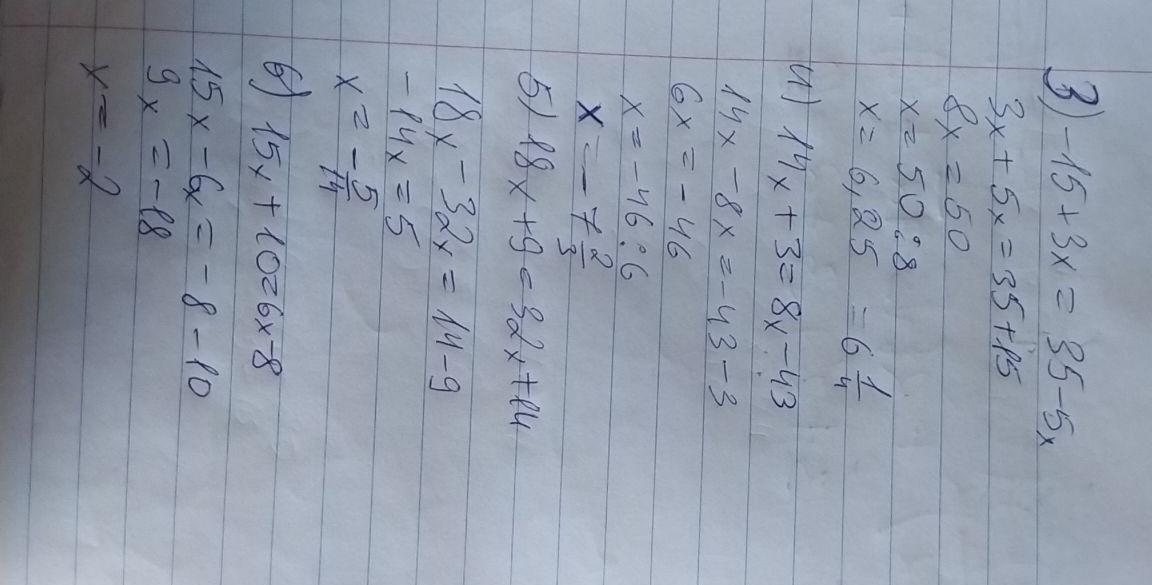 3) -15+3x = 35-5x
3x+5x=35+15
8x=50
x=50:8
x= 6,25 = 6 1/4
4) 14x+3=8x-43
14x-8x=-43-3
6x=-46
x=-46:6
x=-7 2/3
5) 18x+9=32x+14
18x-32x=14-9
-14x=5
x=-5/14
6) 15x+10=6x-8
15x-6x=-8-10
9x=-18
x=-2